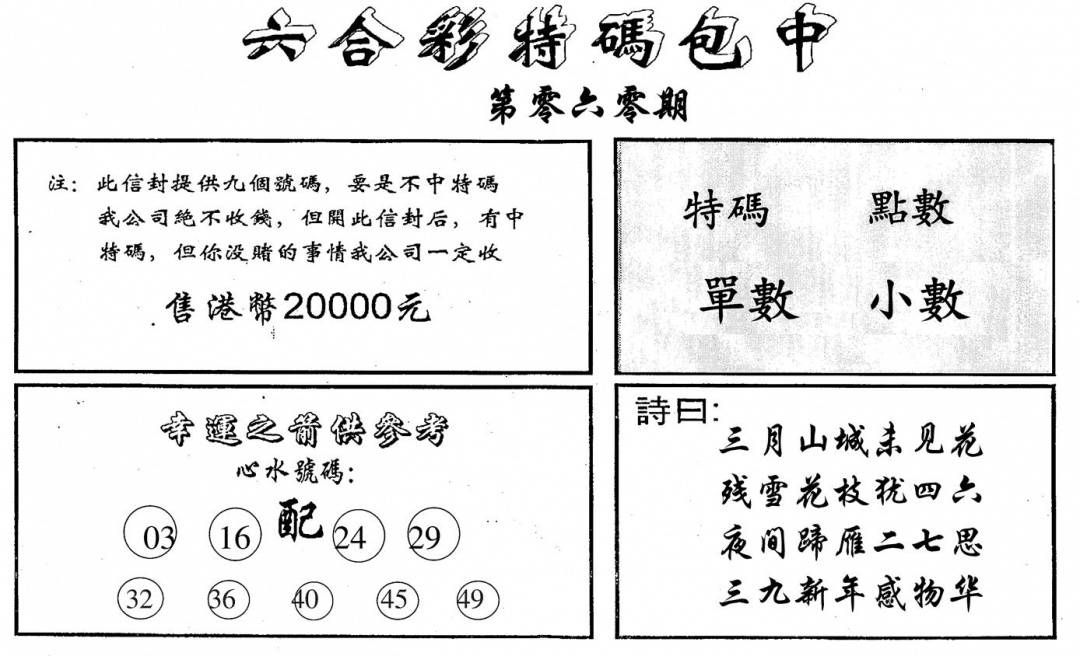 六合彩特碼包中
第零六零期
注：此信封提供九個號碼，要是不中特碼
我公司絕不收錢，但開此信封后，有中
特碼，但你没賭的事情我公司一定收
售港幣20000元
特碼 點數
單數 小數
幸運之箭供參考
心水號碼：
03 16 配 24 29
32 36 40 45 49
詩曰：
三月山城未见花
残雪花枝犹四六
夜间蹄雁二七思
三九新年感物华